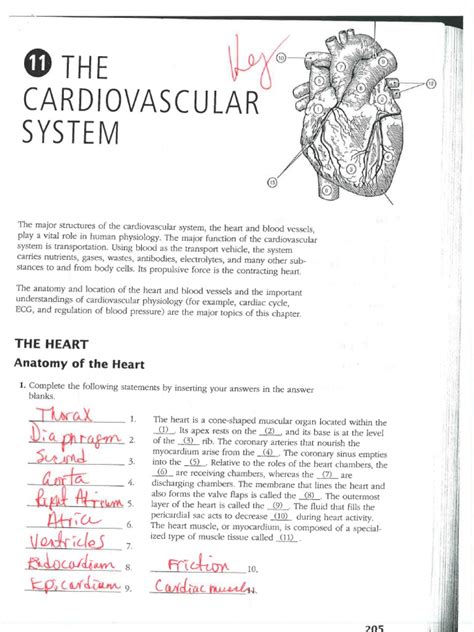 Key
11 THE
CARDIOVASCULAR
SYSTEM
The major structures of the cardiovascular system, the heart and blood vessels,
play a vital role in human physiology. The major function of the cardiovascular
system is transportation. Using blood as the transport vehicle, the system
carries nutrients, gases, wastes, antibodies, electrolytes, and many other sub-
stances to and from body cells. Its propulsive force is the contracting heart.
The anatomy and location of the heart and blood vessels and the important
understandings of cardiovascular physiology (for example, cardiac cycle,
ECG, and regulation of blood pressure) are the major topics of this chapter.
THE HEART
Anatomy of the Heart
1. Complete the following statements by inserting your answers in the answer
blanks.
Thorax 1.
Diaphragm 2.
Second 3.
Aorta 4.
Right Atrium 5.
Atria 6.
Ventricles 7.
Endocardium 8.
Epicardium 9.
The heart is a cone-shaped muscular organ located within the
(1) . Its apex rests on the (2) , and its base is at the level
of the (3) rib. The coronary arteries that nourish the
myocardium arise from the (4) . The coronary sinus empties
into the (5) . Relative to the roles of the heart chambers, the
(6) are receiving chambers, whereas the (7) are
discharging chambers. The membrane that lines the heart and
also forms the valve flaps is called the (8) . The outermost
layer of the heart is called the (9) . The fluid that fills the
pericardial sac acts to decrease (10) during heart activity.
The heart muscle, or myocardium, is composed of a special-
ized type of muscle tissue called (11) .
Friction 10.
Cardiac muscle
205